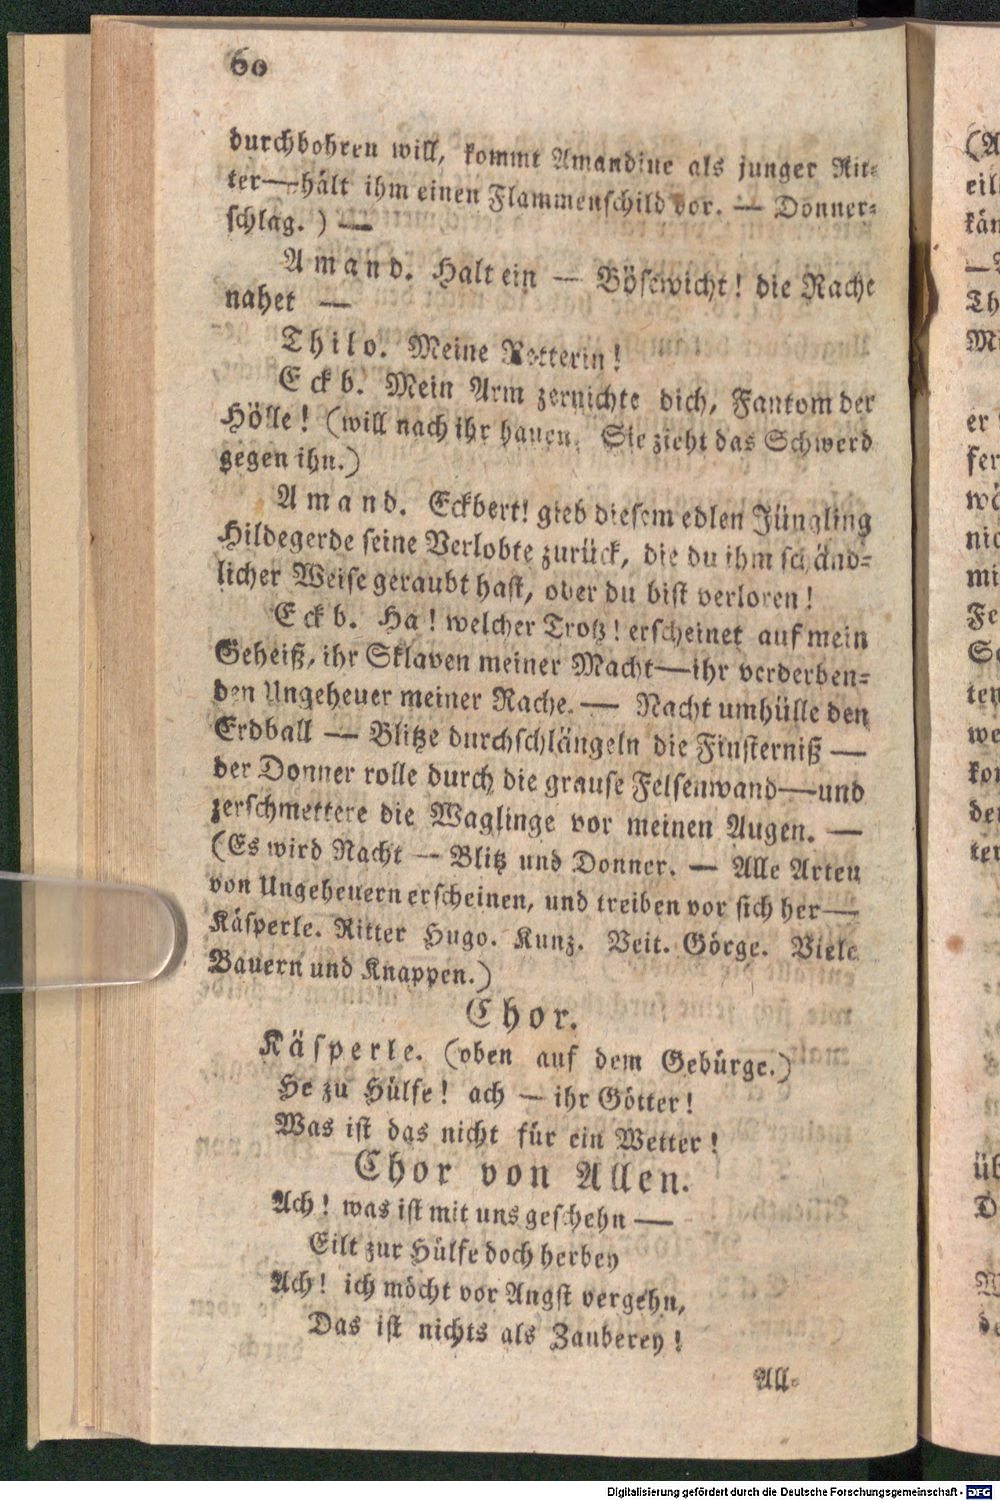 60
durchbohren will, kommt Amandine als junger Rit-
ter—hält ihm einen Flammenschild vor. — Donner-
schlag.) —
Amand. Halt ein — Bösewicht! die Rache
nahet —
Thilo. Meine Retterin!
Eckb. Mein Arm zernichte dich, Fantom der
Hölle! (will nach ihr hauen. Sie zieht das Schwerd
gegen ihn.)
Amand. Eckbert! gieb diesem edlen Jüngling
Hildegerde seine Verlobte zurück, die du ihm schänd-
licher Weise geraubt hast, oder du bist verloren!
Eckb. Ha! welcher Trotz! erscheinet auf mein
Geheiß, ihr Sklaven meiner Macht—ihr verderben-
den Ungeheuer meiner Rache. — Nacht umhülle den
Erdball — Blitze durchschlängeln die Finsterniß —
der Donner rolle durch die grause Felsenwand—und
zerschmettere die Waglinge vor meinen Augen. —
(Es wird Nacht — Blitz und Donner. — Alle Arten
von Ungeheuern erscheinen, und treiben vor sich her—
Käsperle. Ritter Hugo. Kunz. Veit. Görge. Viele
Bauern und Knappen.)
Chor.
Käsperle. (oben auf dem Gebürge.)
He zu Hülfe! ach — ihr Götter!
Was ist das nicht für ein Wetter!
Chor von Allen.
Ach! was ist mit uns geschehn —
Eilt zur Hülfe doch herbey
Ach! ich möcht vor Angst vergehn,
Das ist nichts als Zauberey!
All-
(A
eil
kän
Th
er
fer
wä
nic
mi
Fe
ten
we
kon
der
ter
üb
D
Digitalisierung gefördert durch die Deutsche Forschungsgemeinschaft - DFG